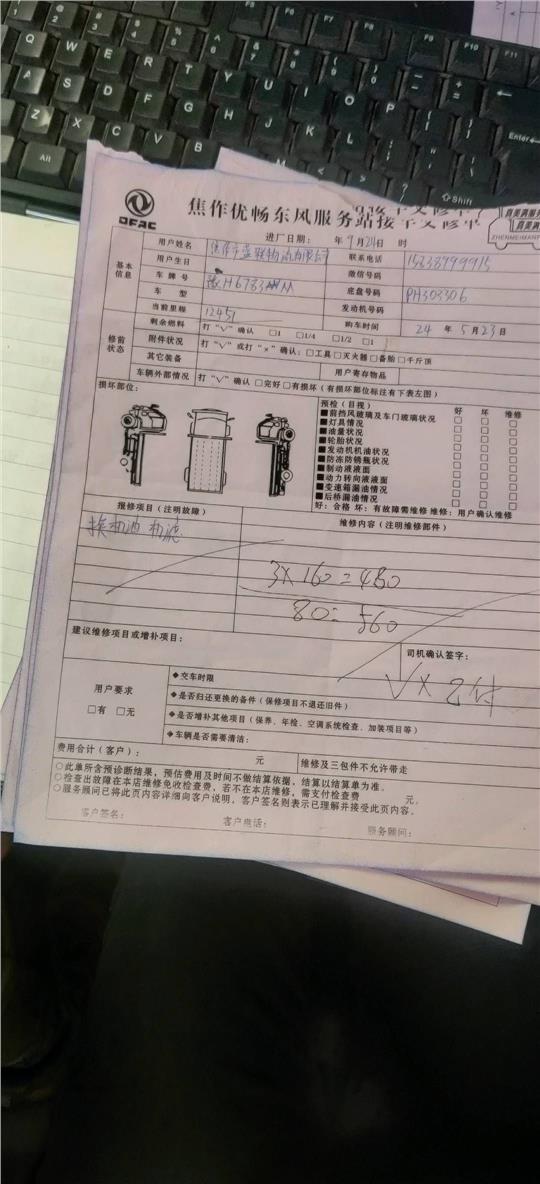 Q W E R T Y U I O P
A S D F G H J K L
Z X C V B N M
Alt
Shift
Enter
F5 F6 F7 F8 F9 F10 F11
DFAC
焦作优畅东风服务站接车交修单
真美满服务
ZHENMEIMANF
进厂日期: 年 9月24日 时
基本信息
用户姓名 联系电话 15238999915
用户生日 微信号码
车牌号 底盘号码 PH303306
车型 发动机号码
当前里程 12451 购车时间 24 年 5 月 23 日
修前状态
剩余燃料 打“√”确认 □1 □1/4 □1/2 □1
附件状况 打“√”或打“×”确认:□工具□灭火器□备胎□千斤顶
其它装备 用户寄存物品
车辆外部情况 打“√”确认□完好□有损坏(有损坏部位标注有下表左图)
损坏部位:
预检(目视) 好 坏 维修
■前挡风玻璃及车门玻璃状况 □ □ □
■灯具情况 □ □ □
■油量状况 □ □ □
■轮胎状况 □ □ □
■发动机机油状况 □ □ □
■防冻防锈瓶状况 □ □ □
■制动液液面 □ □ □
■动力转向液液面 □ □ □
■变速箱漏油情况 □ □ □
■后桥漏油情况 □ □ □
好:合格 坏:有故障需维修 维修:用户确认维修
报修项目(注明故障) 维修内容(注明维修部件)
换机油 机滤
3×160=480
80= 560
建议维修项目或增补项目:
司机确认签字:
用户要求
□有 □无
◆交车时限
◆是否归还更换的备件(保修项目不退还旧件)
◆是否增补其他项目(保养、年检、空调系统检查、加装项目等)
◆车辆是否需要清洁:
费用合计(客户): 元 维修及三包件不允许带走
○此单所含预诊断结果,预估费用及时间不做结算依据,结算以结算单为准。
○检查出故障在本店维修免收检查费,若不在本店维修,需支付检查费 元。
○服务顾问已将此页内容详细向客户说明,客户签名则表示已理解并接受此页内容。
客户签名: 客户电话: 服务顾问: